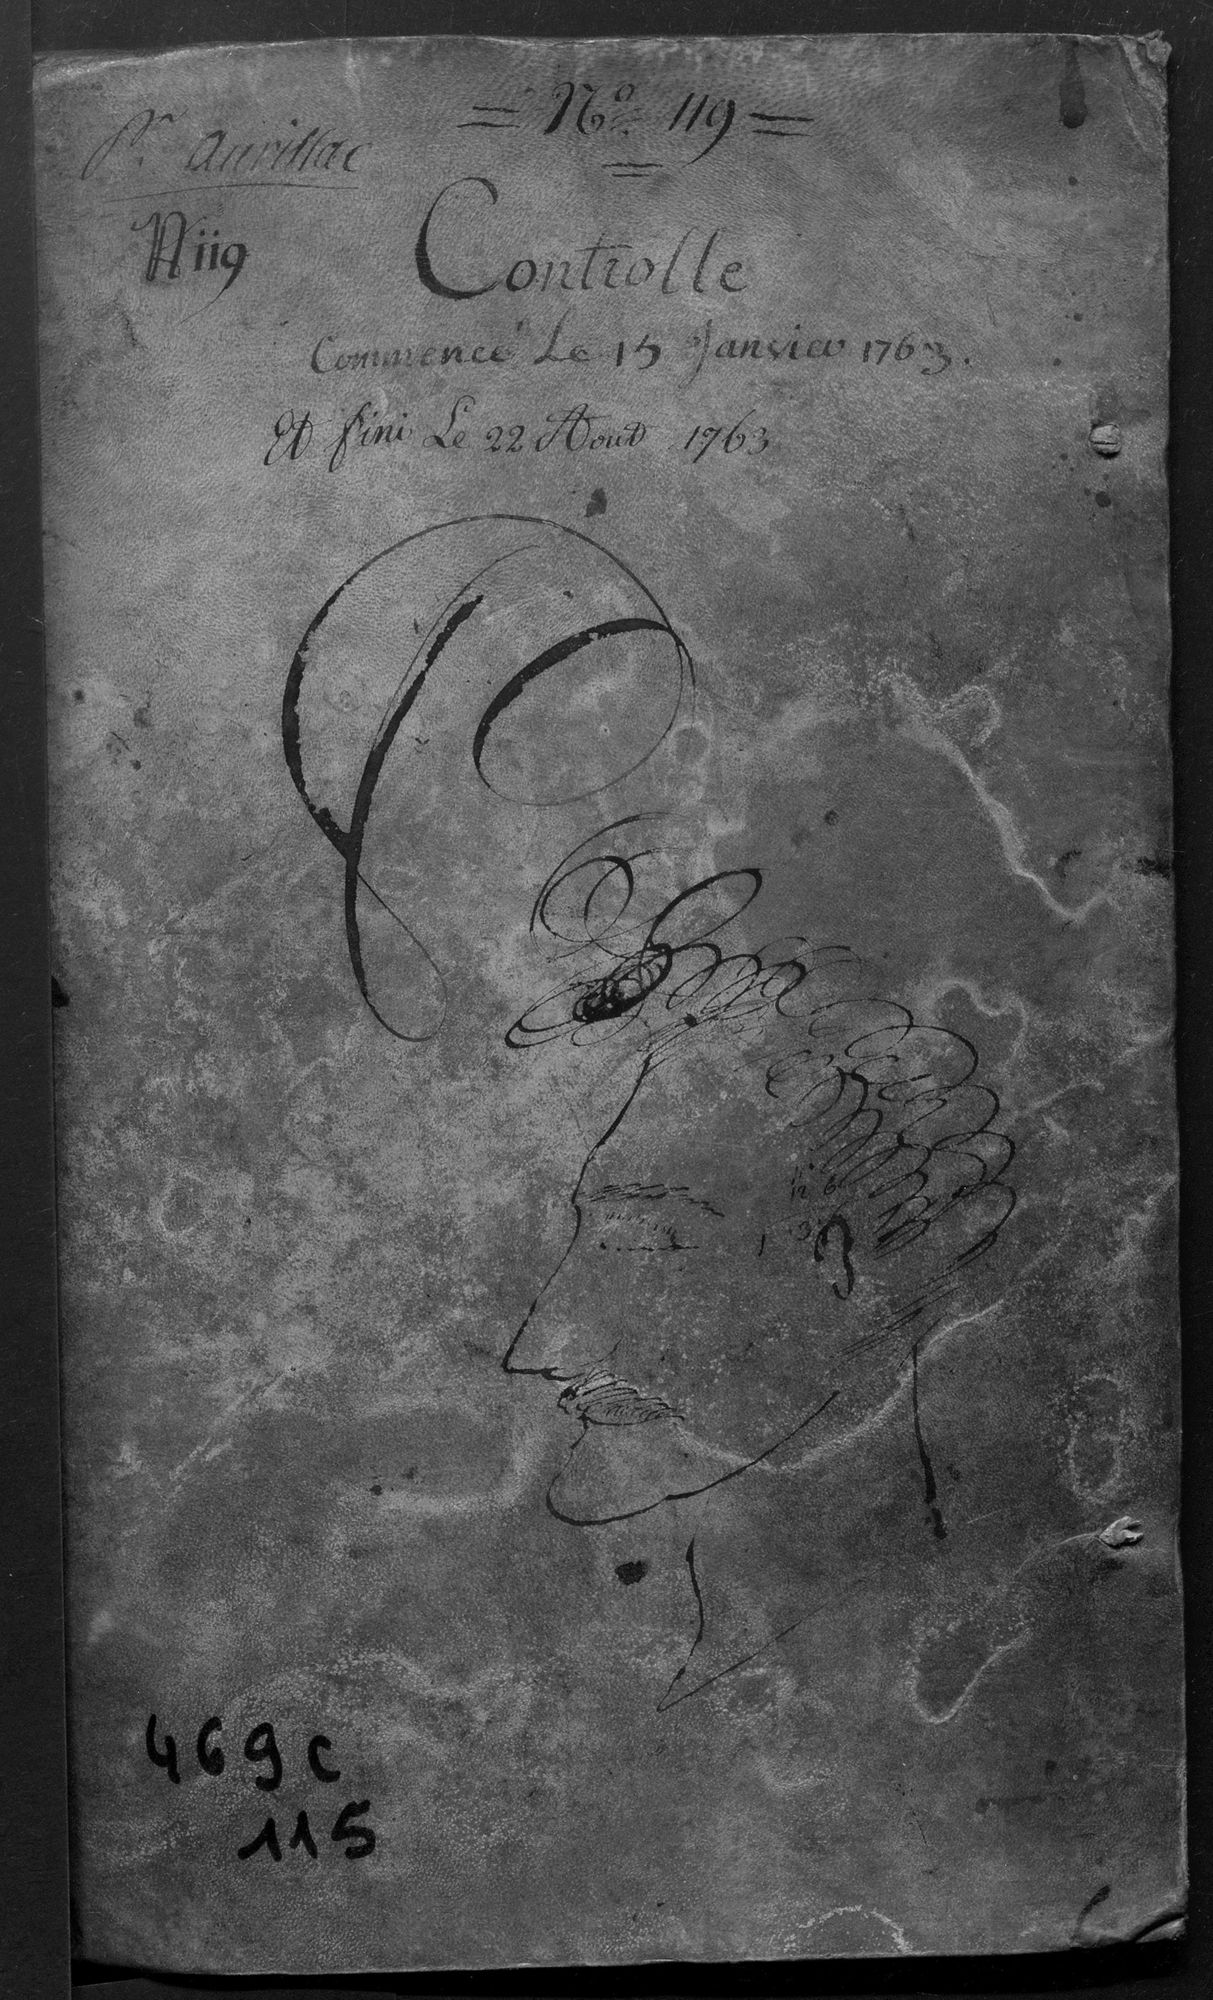 = N.º 119 =
Pr. Aurillac
N 119
Controlle
Commencé Le 15 Janvier 1763.
Et fini Le 22 Aout 1763
12 6
1 3
469 c
115